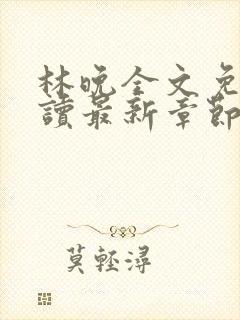 林晚全文免
讀最新章節
莫輕潯